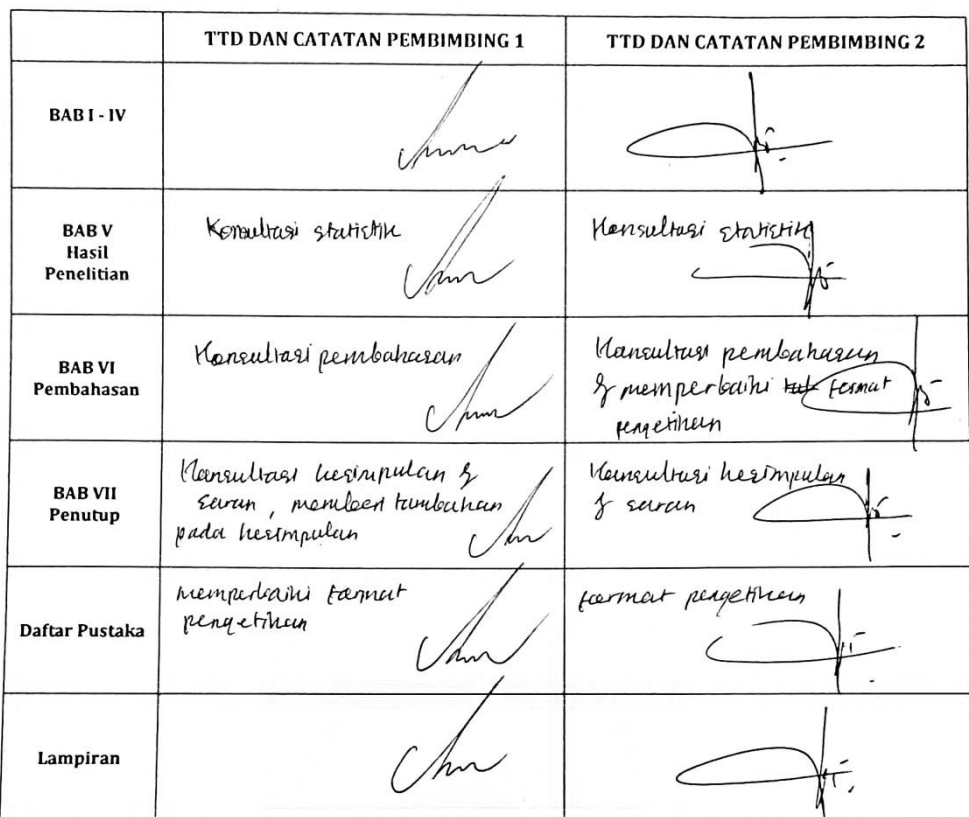 TTD DAN CATATAN PEMBIMBING 1
TTD DAN CATATAN PEMBIMBING 2
BAB I - IV
BAB V
Hasil
Penelitian
Konsultasi statistik
Konsultasi statistik
BAB VI
Pembahasan
Konsultasi pembahasan
Konsultasi pembahasan
& memperbaiki format
pengetikan
BAB VII
Penutup
Konsultasi kesimpulan &
saran, memberi tambahan
pada kesimpulan
Konsultasi kesimpulan
& saran
Daftar Pustaka
memperbaiki format
pengetikan
format pengetikan
Lampiran